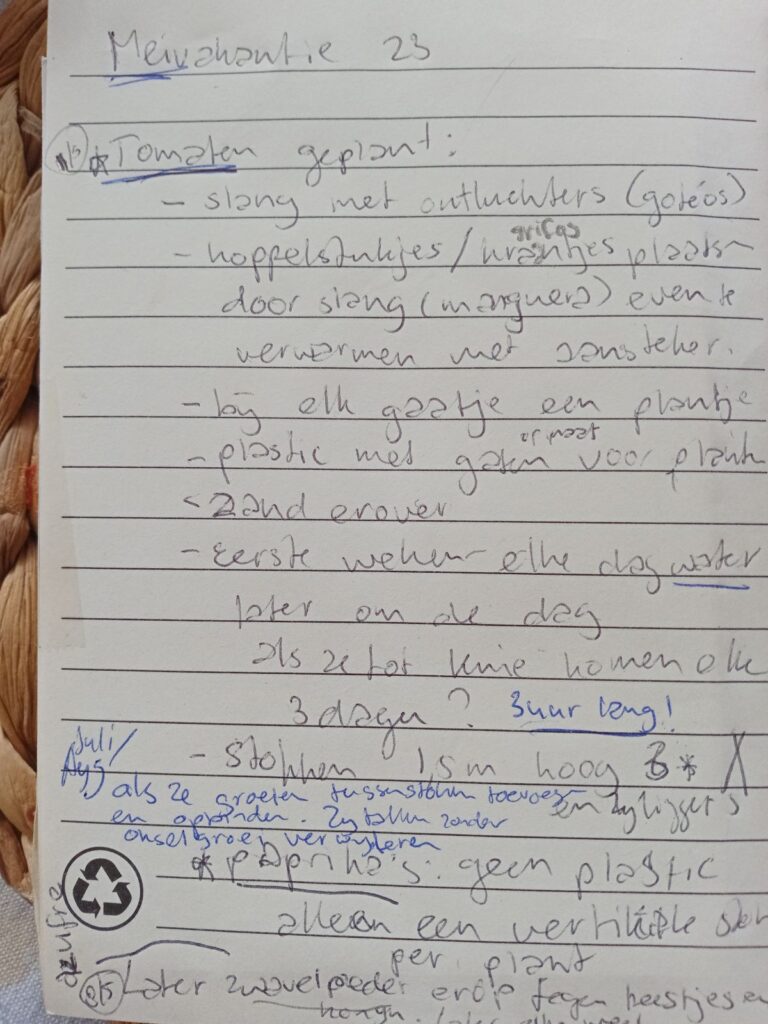 Meivakantie 23
* Tomaten geplant:
- slang met ontluchters (gotéos)
grifos
- koppelstukjes / kraantjes plaatsn
door slang (manguera) even te
verwarmen met aansteker.
- bij elk gaatje een plantje
op maat
- plastic met gaten voor plant
- zand erover
- Eerste weken elke dag water
later om de dag
als ze tot knie komen elke
3 dagen? 3 uur lang!
Juli/
Aug
- stokken 1,5m hoog
en zijliggers
als ze groeien tussenstokken toevoegen
en opbinden. Zijtakken zonder
onselgroei verwijderen
* paprika's: geen plastic
alleen een vertikale stok
per plant
azufre
Later zwavelpoeder erop tegen beestjes en